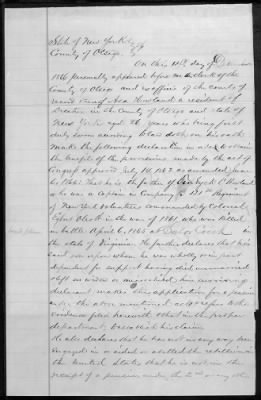 State of New York
County of Otsego } ss
On this 12th day of
1866 personally appeared before me a clerk of the
County of Otsego and ex officio of the courts of
Asa Howland a resident of
in the County of Otsego and state of
New York aged years who being first
duly sworn according to law doth on his oath
make the following declaration in order to obtain
the benefit of the provisions made by the act of Congress
approved July 14, 1862 as amended June
6, 1866: That he is the father of Howland
who was a in Company 121st Regiment
of New York Volunteers commanded by Colonel
Olcott in the war of 1861, who was killed
in battle April 6, 1865 at Sailor Creek
in the state of Virginia. He further declares that his
son upon whom he was wholly or in part
dependent for support having died unmarried
declarant makes this application for a pension
under the above mentioned act & refers to the
evidence filed herewith & that in the proper
department to establish his claim.
He also declares that he has not in any way been
engaged in or aided or abetted the rebellion in
the United States that he is not in the
receipt of a pension under the 2nd or any other